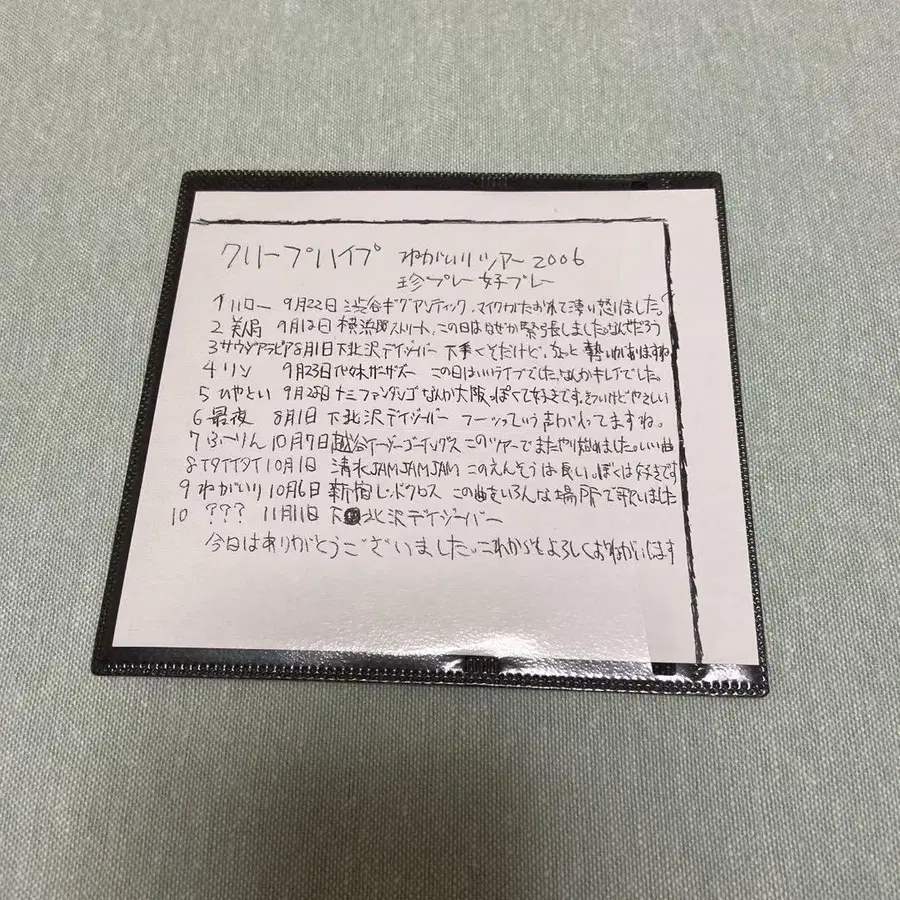 クリープハイプ ねがいりツアー2006
珍プレー好プレー
1 ハロー 9月22日 渋谷ギグアンティック、マイクがたおれて凄い怒りました。
2 美局 9月12日 横浜 ストリート、この日はなぜか緊張しました。なんでだろう
3 サウジアラビア 8月1日 下北沢デイジーバー 下手くそだけど、ちょっと勢いがありますね
4 リン 9月23日 代々木ザーザズー この日はいいライブでした、なんかキレイでした。
5 ひやとい 9月28日 十三ファンダンゴ なんか大阪っぽくて好きです。きついけどやさしい
6 最夜 8月1日 下北沢デイジーバー フーッっていう声がわってますね。
7 ふーりん 10月7日 越谷イージーゴーイングス このツアーでまたやり始めました。いい曲
8 イタイイタイ 10月1日 清水JAMJAMJAM このえんそうは長い。ぼくは好きです
9 ねがいり 10月6日 新宿レッドクロス この曲をいろんな場所で歌いました
10 ??? 11月11日 下北沢デイジーバー
今日はありがとうございました。これからもよろしくおねがいします